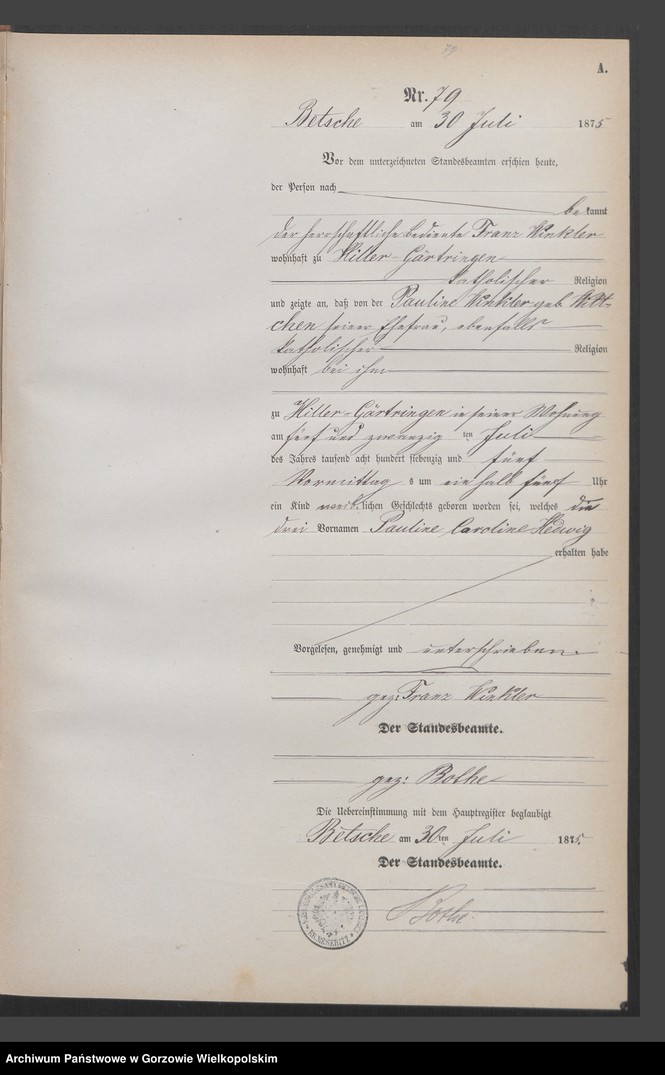 79
A.
Nr. 79
Betsche am 30 Juli 1875
Vor dem unterzeichneten Standesbeamten erschien heute,
der Person nach
bekannt
der herrschaftliche Bediente Franz Winkler
wohnhaft zu Hiller-Gärtringen
katholischer Religion
und zeigte an, daß von der Pauline Winkler geb. Witt-
chen seiner Ehefrau, ebenfalls
katholischer Religion
wohnhaft bei ihm
zu Hiller-Gärtringen in seiner Wohnung
am fünf und zwanzig ten Juli
des Jahres tausend acht hundert siebenzig und fünf
Vormittags um ein halb fünf Uhr
ein Kind weiblichen Geschlechts geboren worden sei, welches die
drei Vornamen Pauline Caroline Hedwig
erhalten habe
Vorgelesen, genehmigt und unterschrieben.
gez: Franz Winkler
Der Standesbeamte.
gez: Bothe
Die Uebereinstimmung mit dem Hauptregister beglaubigt
Betsche am 30ten Juli 1875.
Der Standesbeamte.
Bothe.
KR. MESERITZ
Archiwum Państwowe w Gorzowie Wielkopolskim